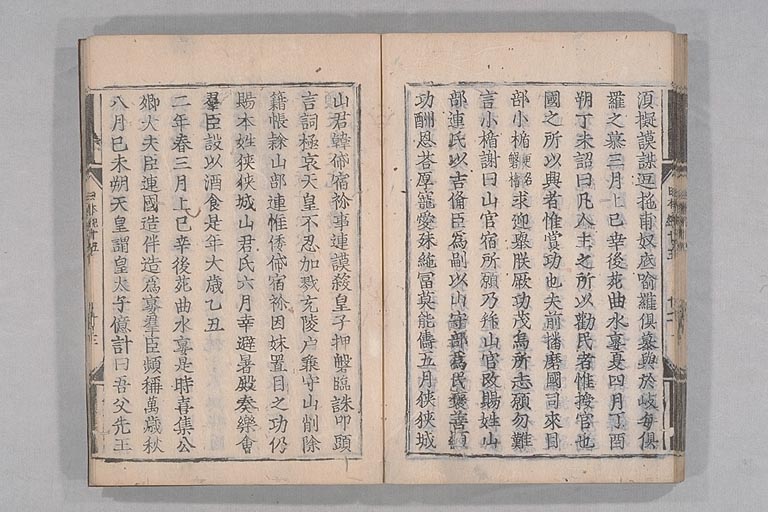 須擬謨謀逗挓甫奴底齋羅俱葬與於岐每俱
羅之慕三月上巳幸後苑曲水宴夏四月丁酉
朔丁未詔曰凡人主之所以勸民者惟授官也
國之所以興者惟賞功也夫前播磨國司來目
部小楯更名磐楯求迎舉朕厥功茂焉所志願勿難
言小楯謝曰山官宿所願乃拜山官改賜姓山
部連氏以吉備臣為副以山守部為民褒善顯
功酬恩荅厚寵愛殊絕冨莫能儔五月狹狹城
山君韓帒宿祢事連謨殺皇子押磐臨誅叩頭
言詞極哀天皇不忍加戮充陵户兼守山削除
籍帳隸山部連惟倭帒宿祢因妹置目之功仍
賜本姓狹狹城山君氏六月幸避暑殿奏樂會
羣臣設以酒食是年大歲乙丑
二年春三月上巳幸後苑曲水宴是時喜集公
卿大夫臣連國造伴造為宴羣臣頻稱萬歲秋
八月己未朔天皇謂皇太子億計曰吾父先王